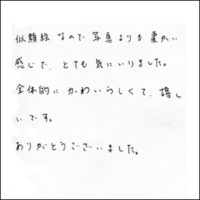 似顔絵なので写真よりも柔かい
感じで、とても気にいりました。
全体的にかわいらしくて、嬉し
いです。
ありがとうございました。